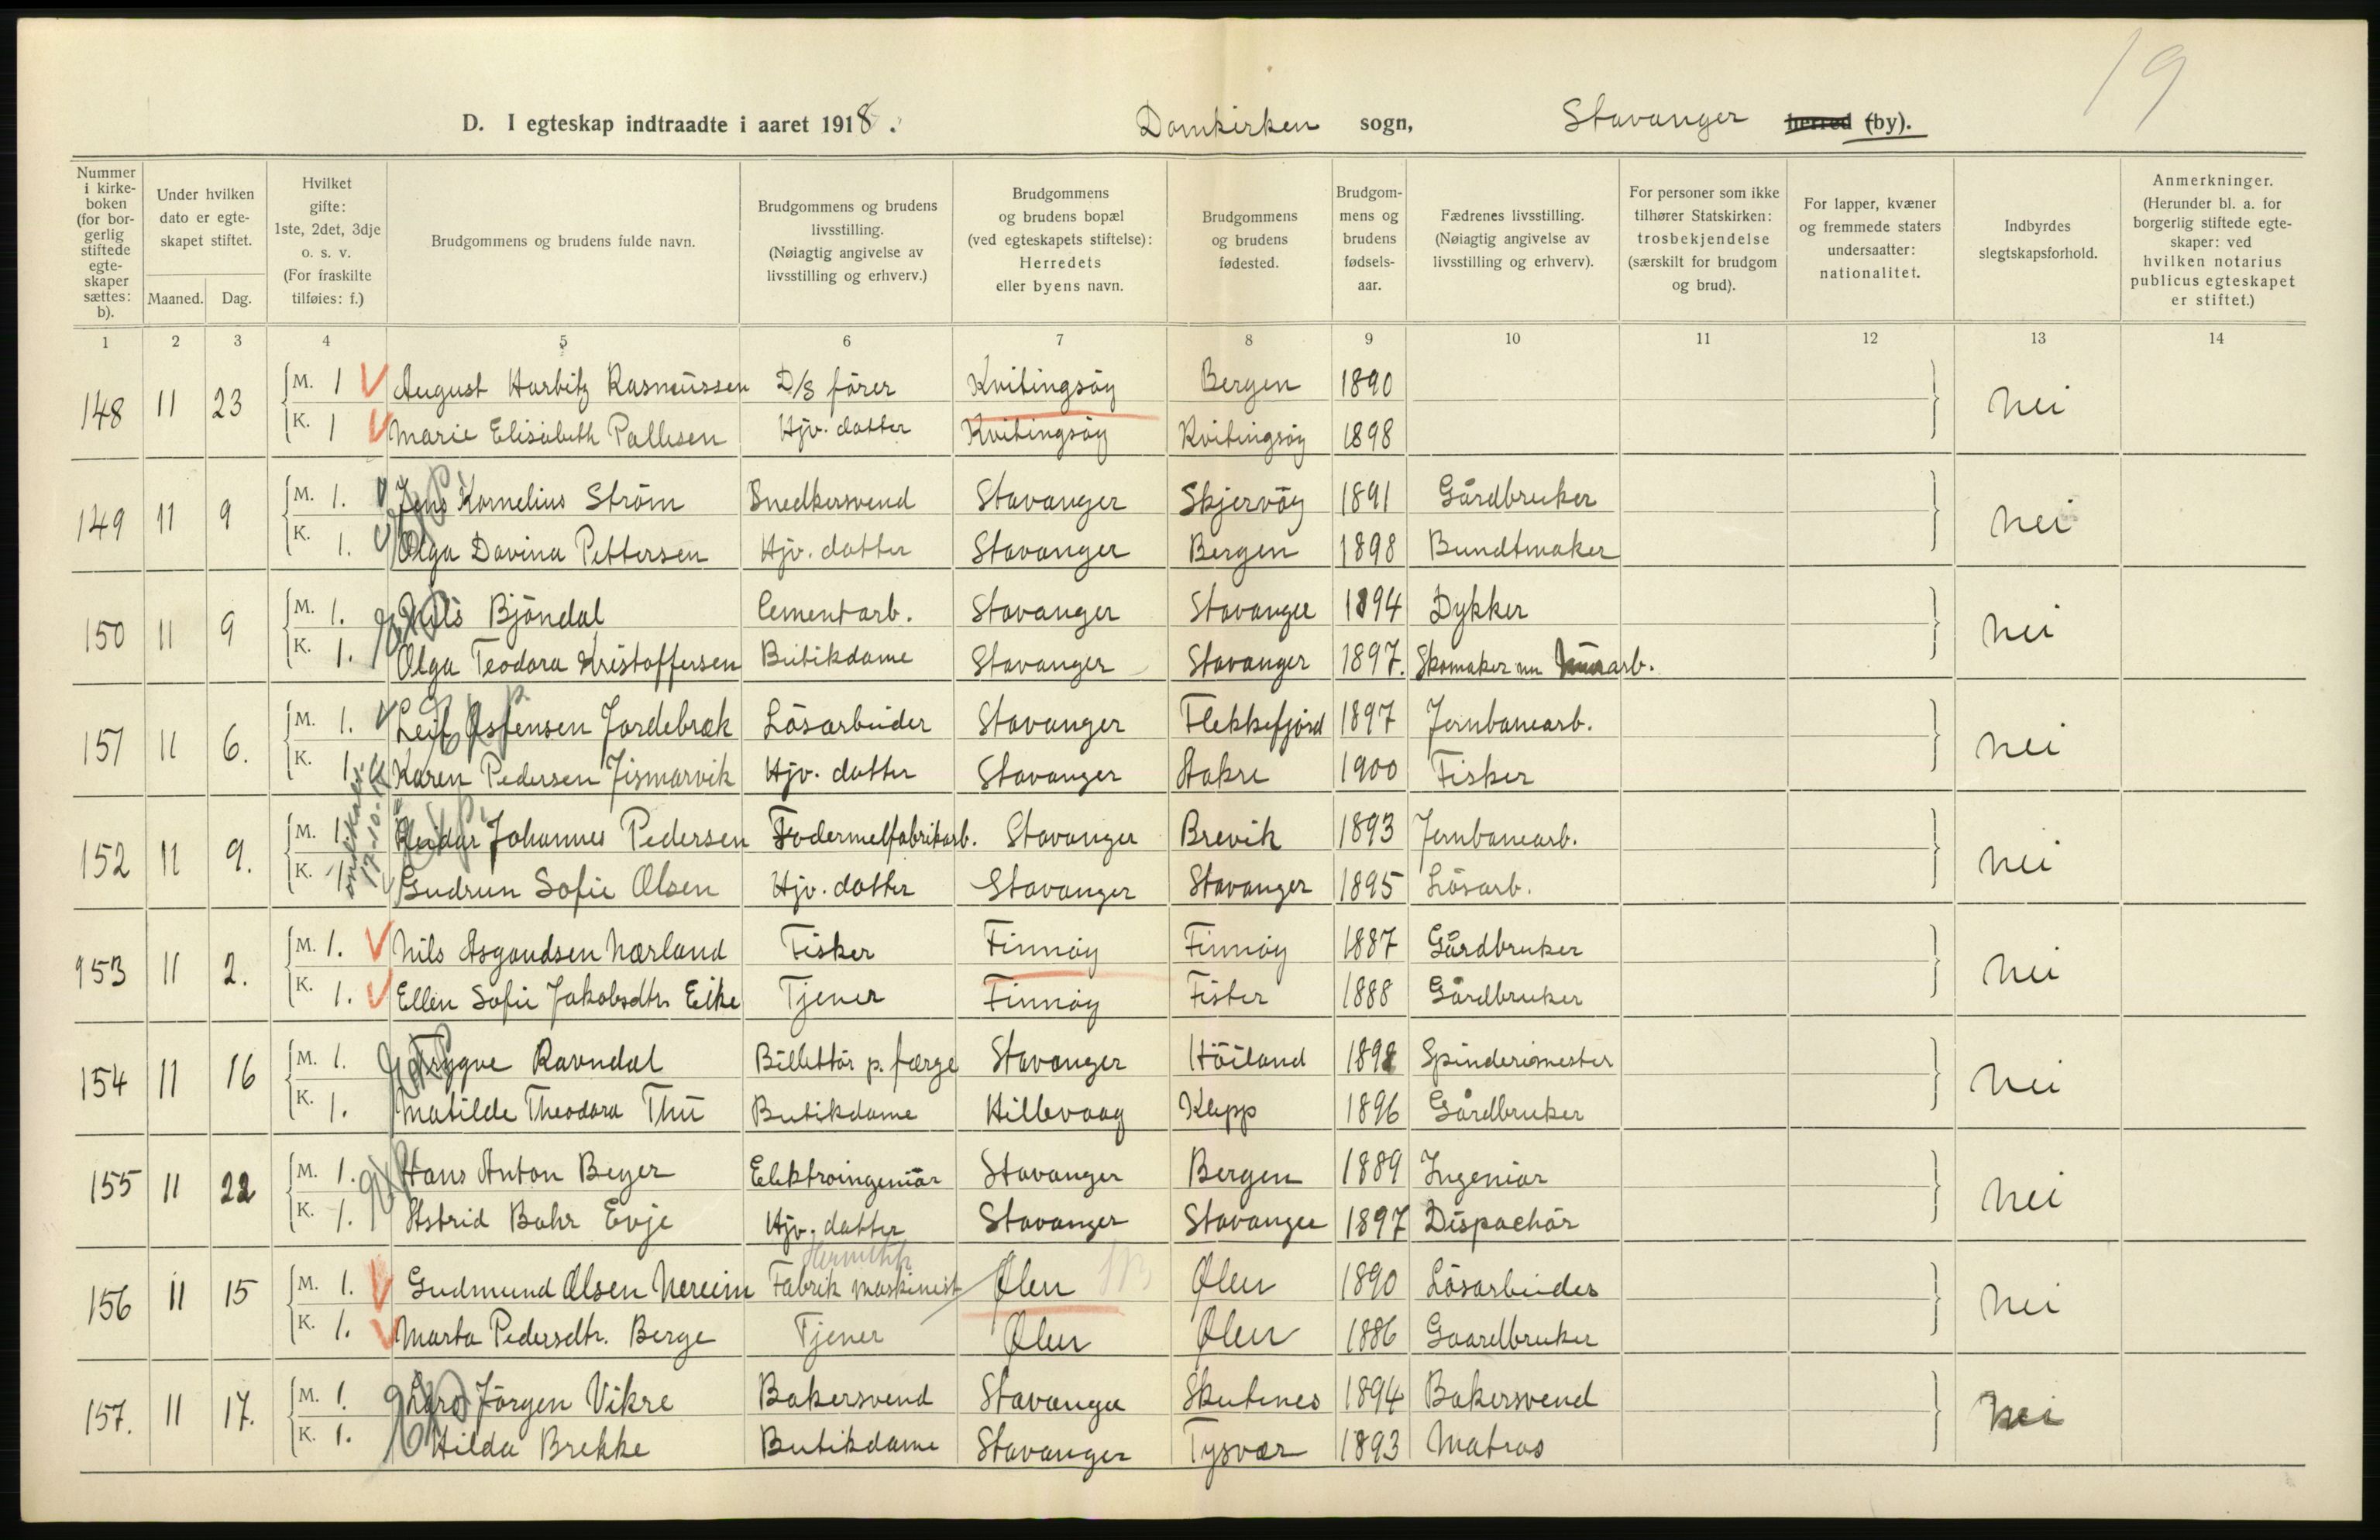 19
D. I egteskap indtraadte i aaret 1918. Domkirken sogn, Stavanger herred (by).
Nummer i kirkeboken (for borgerlig stiftede egteskaper sættes: b).
Under hvilken dato er egteskapet stiftet.
Maaned. Dag.
Hvilket gifte: 1ste, 2det, 3dje o. s. v. (For fraskilte tilføies: f.)
Brudgommens og brudens fulde navn.
Brudgommens og brudens livsstilling. (Nøiagtig angivelse av livsstilling og erhverv.)
Brudgommens og brudens bopæl (ved egteskapets stiftelse): Herredets eller byens navn.
Brudgommens og brudens fødested.
Brudgommens og brudens fødselsaar.
Fædrenes livsstilling. (Nøiagtig angivelse av livsstilling og erhverv).
For personer som ikke tilhører Statskirken: trosbekjendelse (særskilt for brudgom og brud).
For lapper, kvæner og fremmede staters undersaatter: nationalitet.
Indbyrdes slegtskapsforhold.
Anmerkninger. (Herunder bl. a. for borgerlig stiftede egteskaper: ved hvilken notarius publicus egteskapet er stiftet.)
1 2 3 4 5 6 7 8 9 10 11 12 13 14
148 11 23 M. 1 August Harbitz Rasmussen D/S fører Kvitingsøy Bergen 1890 nei
K. 1 Marie Elisabeth Pallesen Hjv. datter Kvitingsøy Kvitingsøy 1898
149 11 9 M. 1. Jens Kornelius Strøm Snedkersvend Stavanger Skjervøy 1891 Gårdbruker nei
K. 1. Olga Davina Pettersen Hjv. datter Stavanger Bergen 1898 Bundtmaker
150 11 9 M. 1. Nils Bjöndal Cementarb. Stavanger Stavanger 1894 Dykker nei
K. 1. Olga Teodora Kristoffersen Butikdame Stavanger Stavanger 1897. Skomaker nu
151 11 6. M. 1. Leif Jordebræk Lösarbeider Stavanger Flekkefjord 1897 Jernbanearb. nei
K. 1. Karen Pedersen Jismarvik Hjv. datter Stavanger Stakre 1900 Fisker
152 11 9. M. 1. Reidar Johannes Pedersen Fodermelfabrikarb. Stavanger Brevik 1893 Jernbanearb. nei
K. 1. Gudrun Sofie Olsen Hjv. datter Stavanger Stavanger 1895 Lösarb.
153 11 2. M. 1. Nils Asgaudsen Nærland Fisker Finnøy Finnøy 1887 Gårdbruker nei
K. 1. Ellen Sofie Jakobsdtr. Eike Tjener Finnøy Fister 1888 Gårdbruker
154 11 16 M. 1. Trygve Ravndal Billettör p. færge Stavanger Höiland 1898 Spinderimester nei
K. 1. Matilde Theodora Thu Butikdame Hillevaag Klepp 1896 Gårdbruker
155 11 22 M. 1. Hans Anton Beyer Elektroingeniör Stavanger Bergen 1889 Ingeniør nei
K. 1. Astrid Bahr Evje Hjv. datter Stavanger Stavanger 1897 Dispachör
156 11 15 M. 1. Gudmund Olsen Nereim Fabrik maskinist Ølen Ølen 1890 Lösarbeider nei
Hermetik
K. 1. Marta Pedersdtr. Berge Tjener Ølen Ølen 1886 Gaardbruker
157. 11 17. M. 1. Lars Jörgen Vikre Bakersvend Stavanger Skutenes 1894 Bakersvend nei
K. 1. Hilda Brekke Butikdame Stavanger Tysvær 1893 Matros